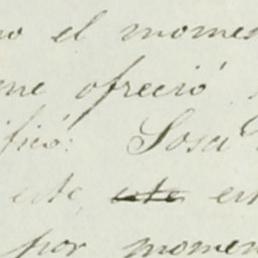 el momen
me ofreció
ificó:
este, este est
por momen